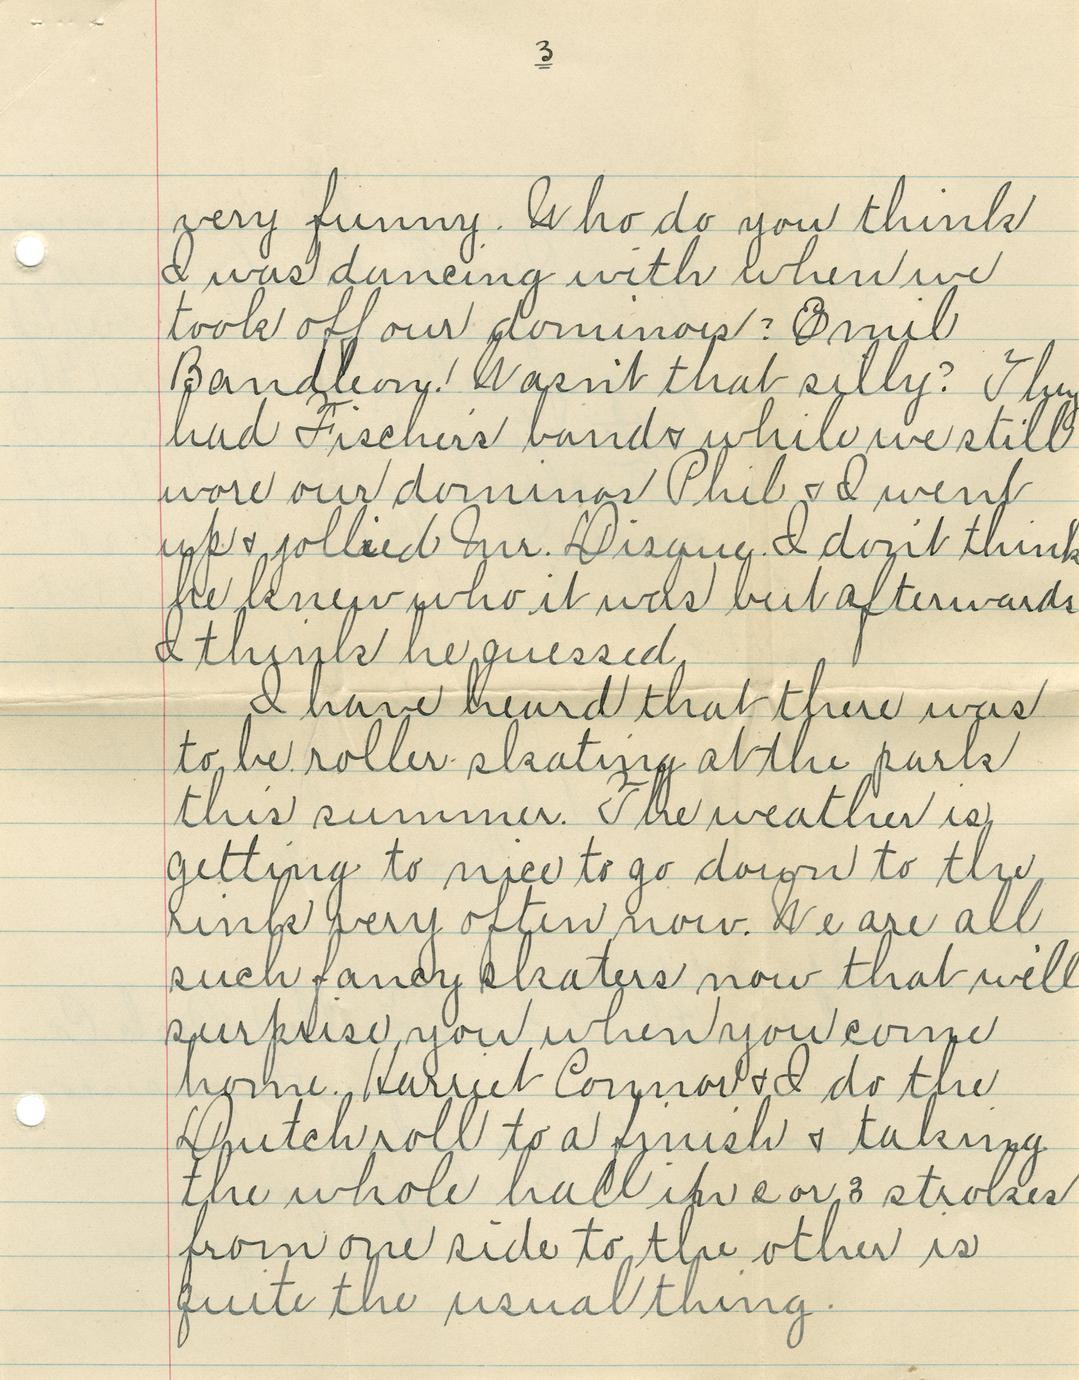 3
very funny. Who do you think
I was dancing with when we
took off our dominoes? Emil
Bandleon! Wasn't that silly? They
had Fischer's band & while we still
wore our dominos Phil & I went
up & jollied Mr. Disque. I don't think
he knew who it was but afterwards
I think he guessed.
I have heard that there was
to be roller skating at the park
this summer. The weather is
getting to nice to go down to the
rink very often now. We are all
such fancy skaters now that will
surprise you when you come
home. Harriet Connor & I do the
Dutch roll to a finish & taking
the whole hall in 2 or 3 strokes
from one side to the other is
quite the usual thing.